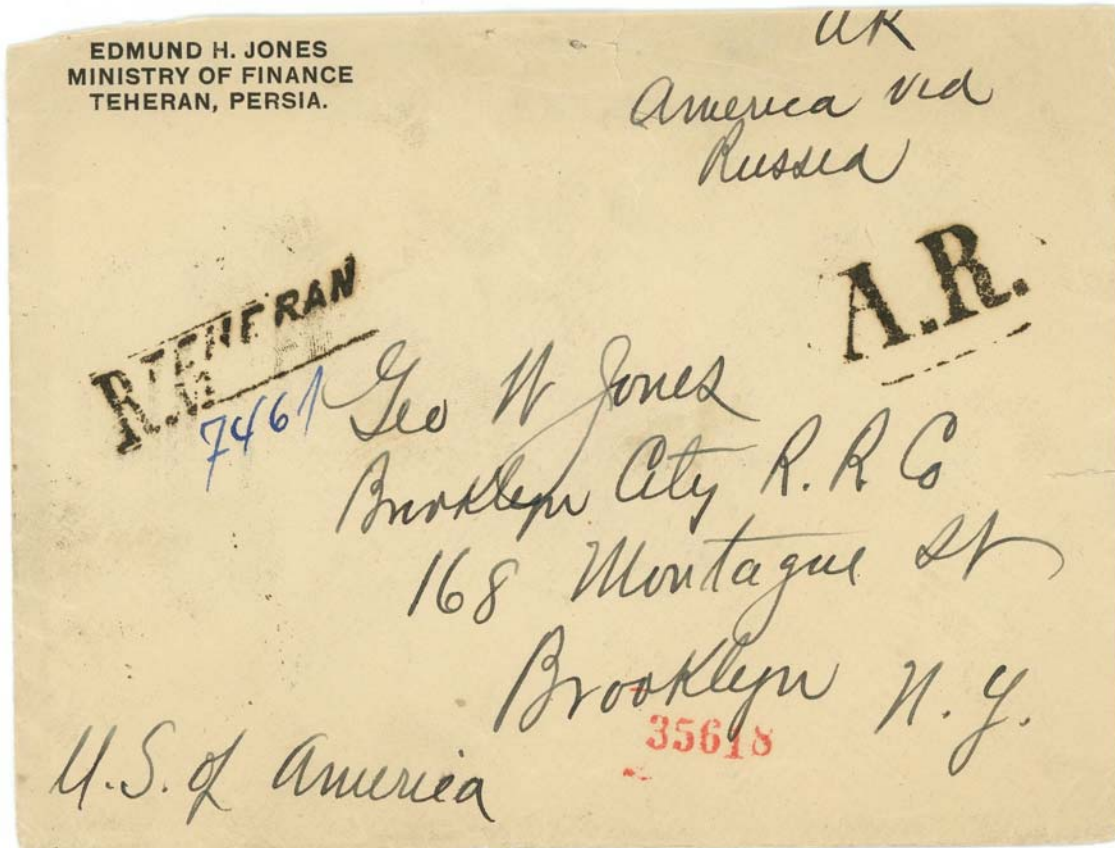 EDMUND H. JONES
MINISTRY OF FINANCE
TEHERAN, PERSIA.
America via
Russia
A.R.
TEHERAN
R.
7461
Geo W Jones
Brooklyn City R. R Co
168 Montague St
Brooklyn N. Y.
35618
U.S. of America